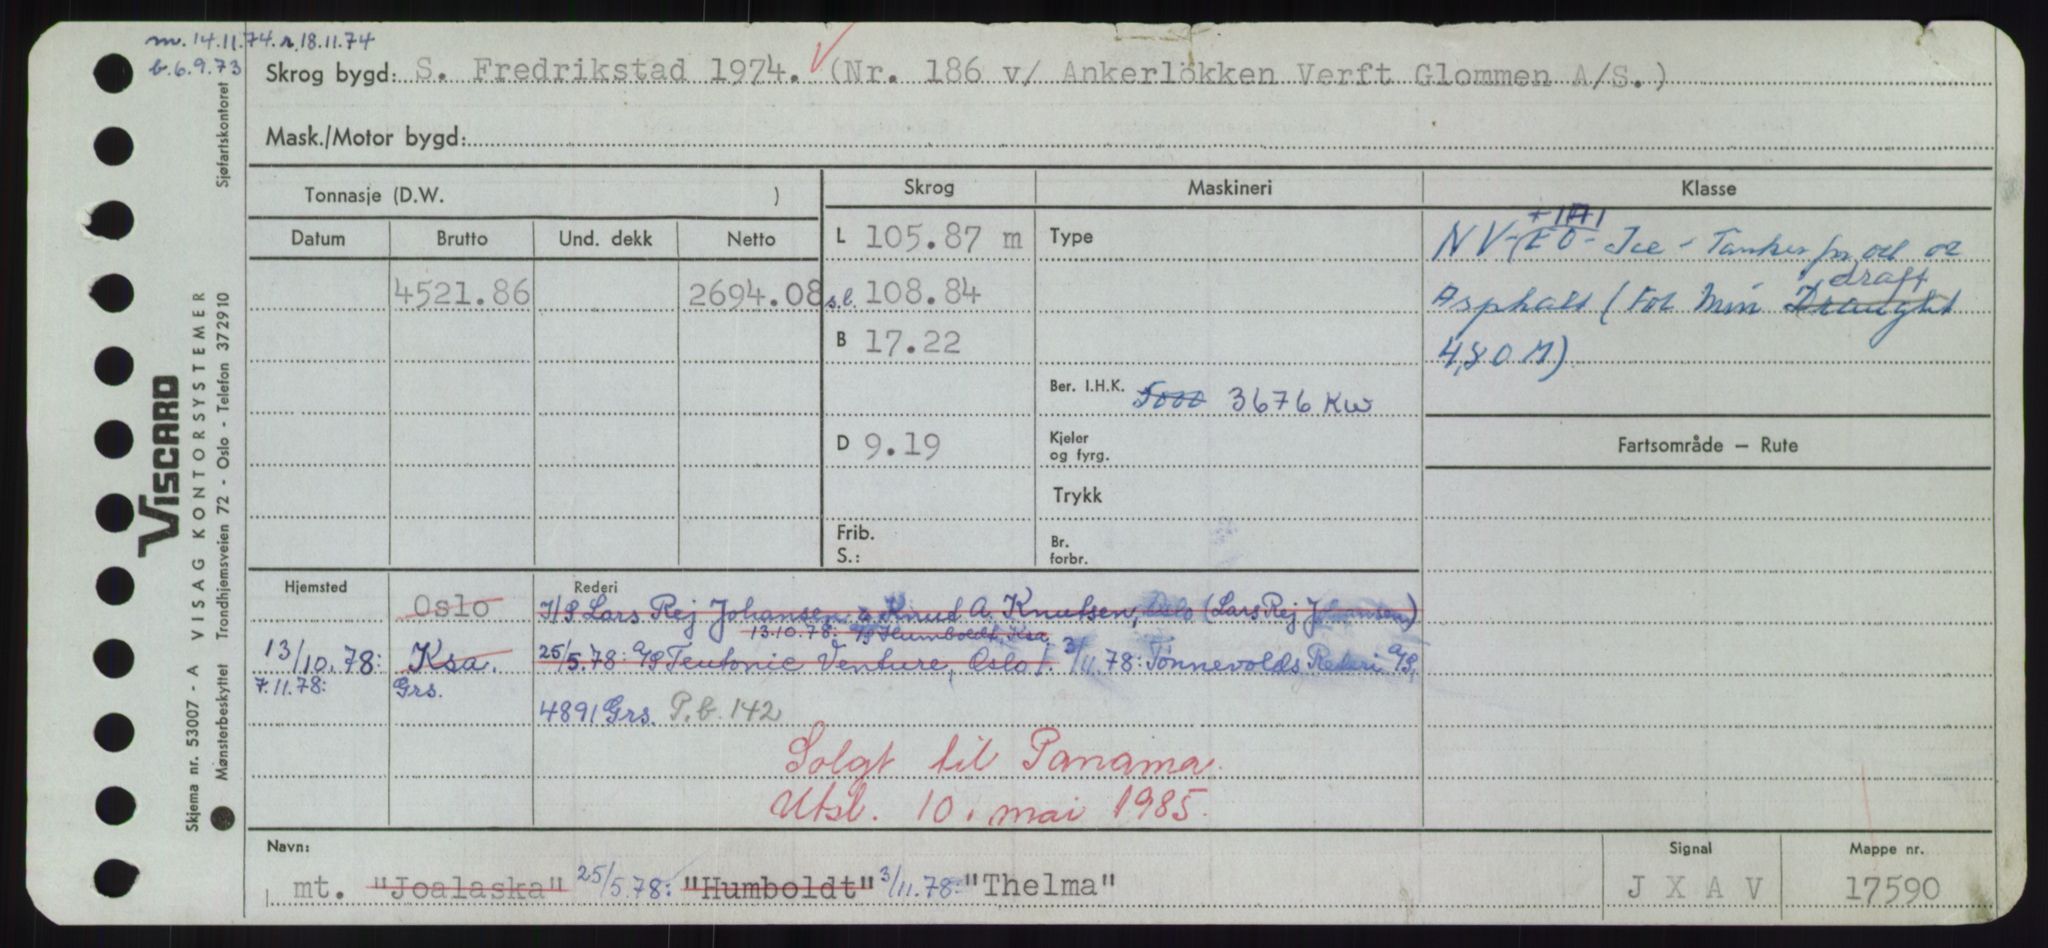 m. 14.11.74. r. 18.11.74
b. 6.9.73
Skrog bygd: S. Fredrikstad 1974. (Nr. 186 v/ Ankerlökken Verft Glommen A/S.)
Mask./Motor bygd:
Tonnasje (D.W. )
Skrog
Maskineri
Klasse
Datum
Brutto
Und. dekk
Netto
L 105.87 m
Type
+1A1
NV-EO-Ice - Tanker for oil
4521.86
2694.08
s.l. 108.84
draft
Asphalt (For Min Draught
B 17.22
4,80 M)
Ber. I.H.K. 5000 3676 Kw
Fartsområde — Rute
D 9.19
Kjeler
og fyrg.
Trykk
Frib.
S.:
Br.
forbr.
Hjemsted
Rederi
Oslo
I/S Lars Rej Johansen & Knud A. Knutsen, Oslo (Lars Rej Johansen)
13.10.78: Humboldt, Ksa
13/10.78:
Ksa.
25/5.78: A/S Teutonic Venture, Oslo/. 3/11.78: Tønnevolds Rederi A/S,
7.11.78:
Grs.
4891 Grs. P.b. 142
Solgt til Panama.
Utsl. 10. mai 1985.
Navn:
Signal
Mappe nr.
mt. "Joalaska" 25/5.78: "Humboldt" 3/11.78: "Thelma"
J X A V
17590
VISCARD
Skjema nr. 53007 - A VISAG KONTORSYSTEMER
Mønsterbeskyttet Trondhjemsveien 72 - Oslo - Telefon 372910
Sjøfartskontoret